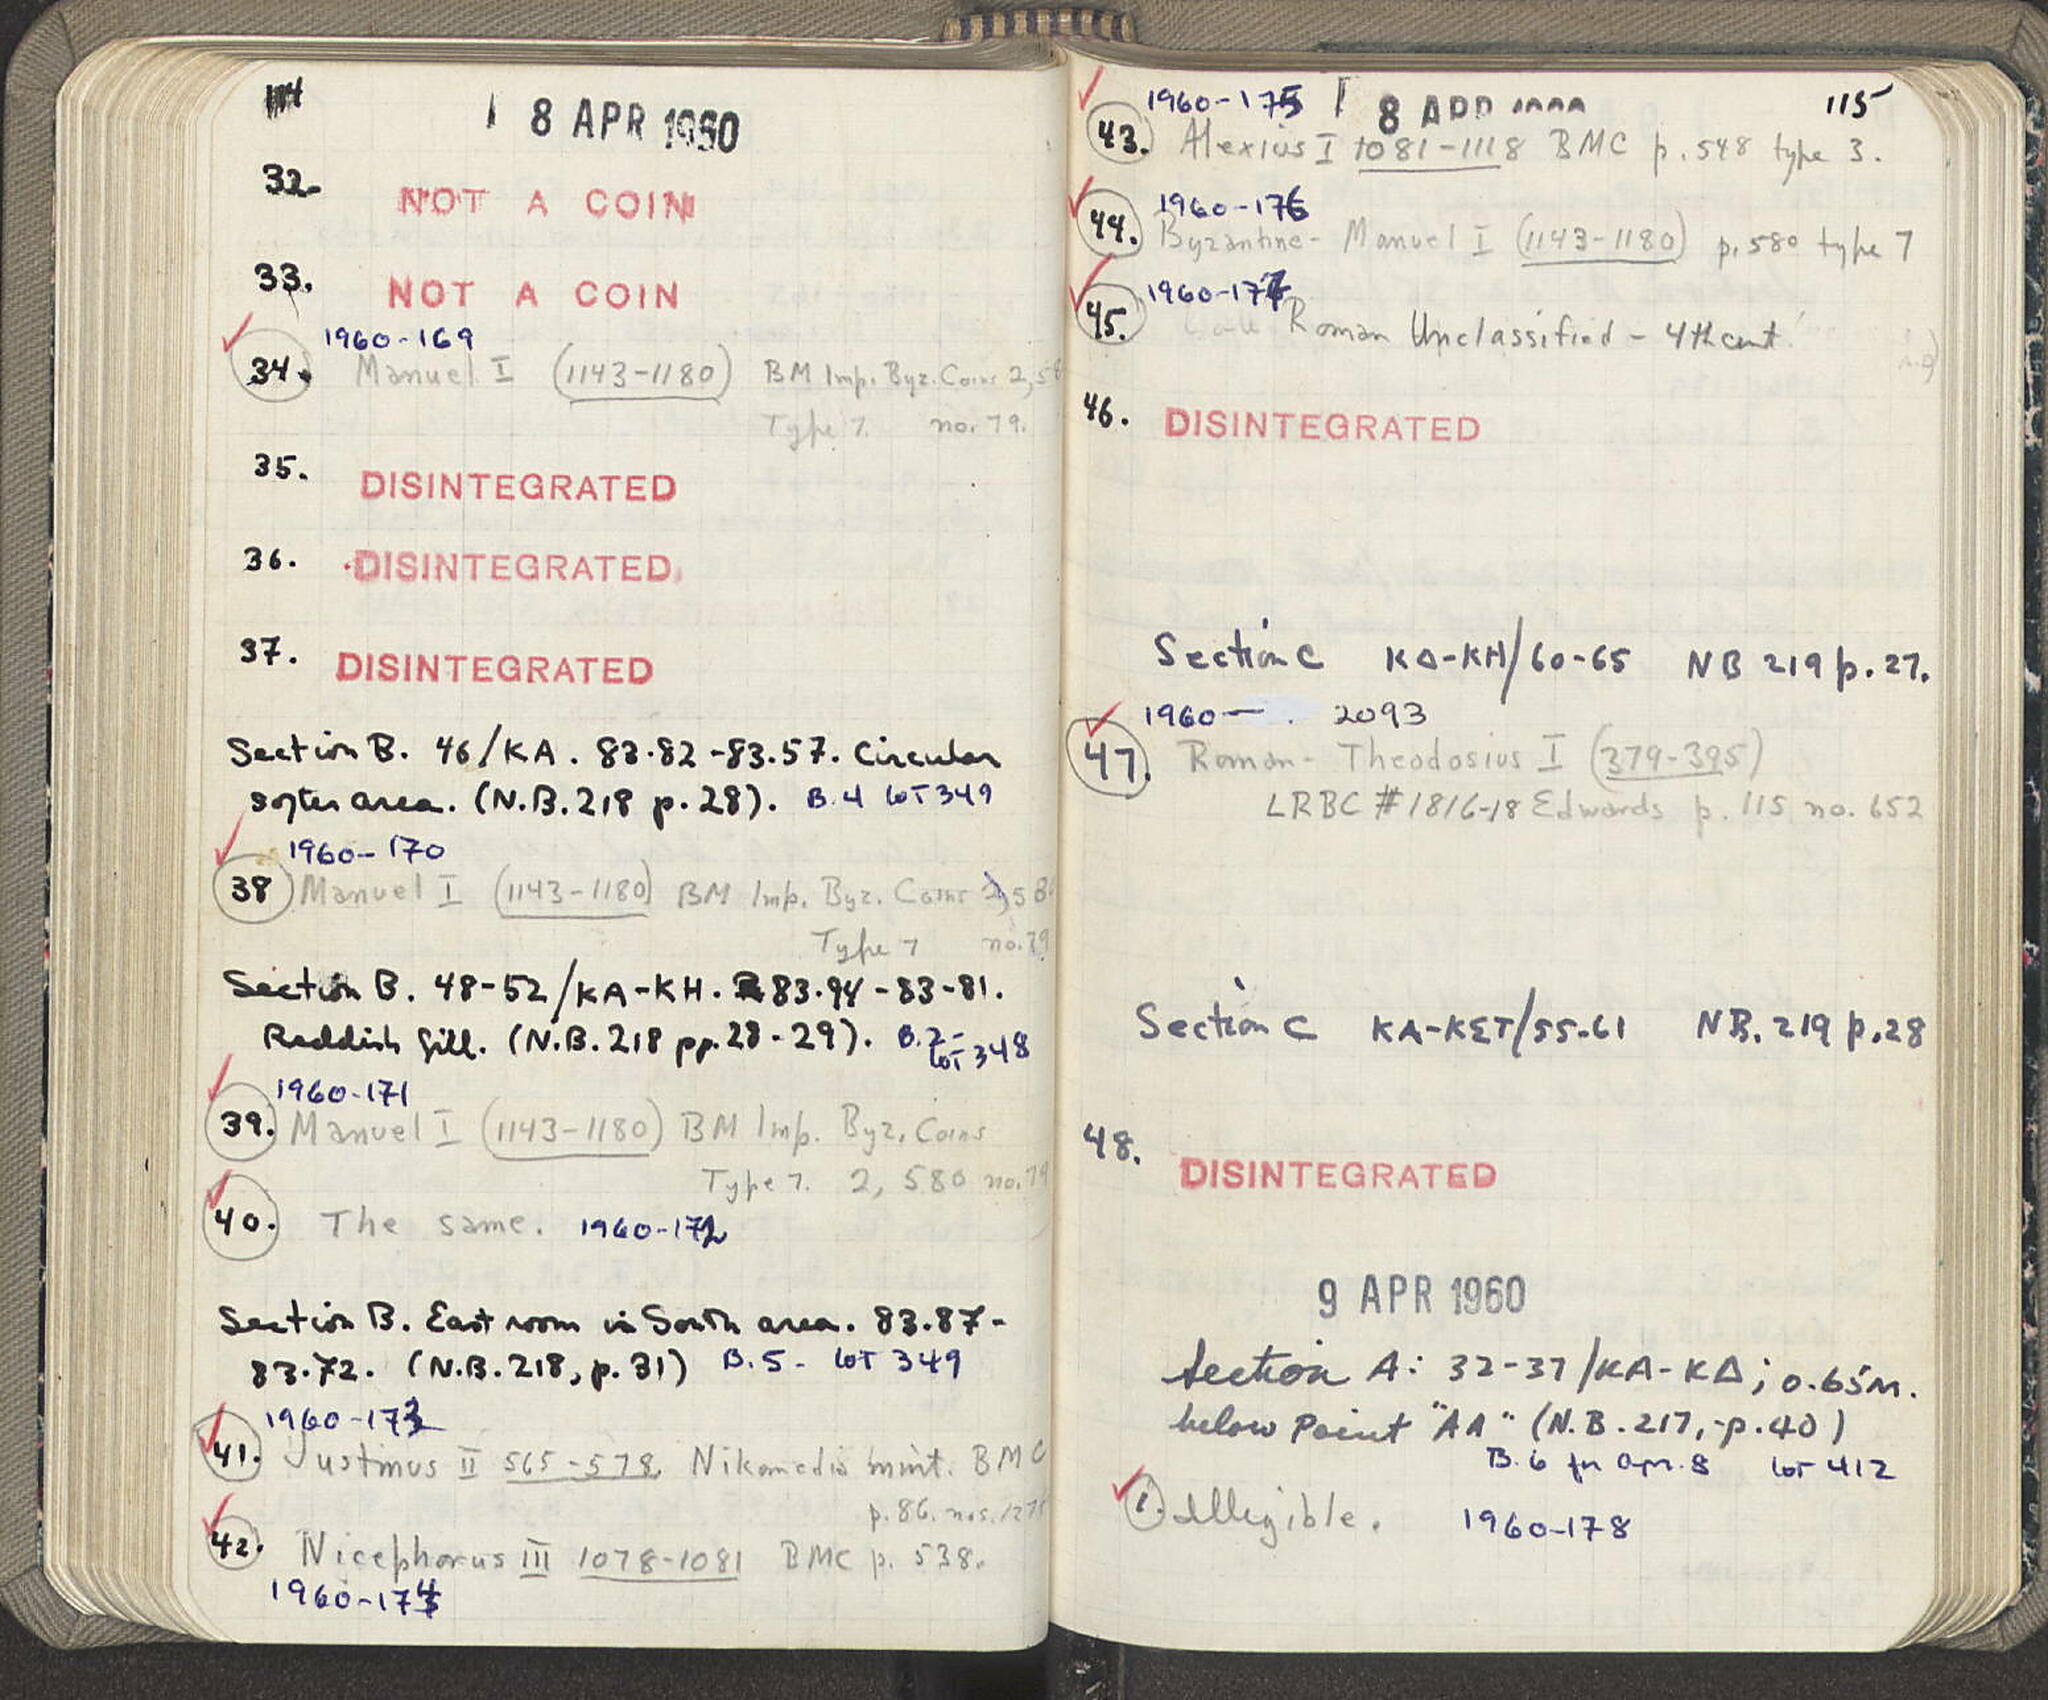 114
8 APR 1960
32.
NOT A COIN
33.
NOT A COIN
1960-169
34. Manuel I (1143-1180) BM Imp. Byz. Coins 2, 58
Type 7. no. 79.
35.
DISINTEGRATED
36.
DISINTEGRATED
37.
DISINTEGRATED
Section B. 46/KA. 83.82-83.57. Circular
area. (N.B. 218 p. 28). B.4 LOT 349
1960-170
38 Manuel I (1143-1180) BM Imp. Byz. Coins 2, 58
Type 7 no. 79
Section B. 48-52/KA-KH. 83.94-83-81.
Reddish fill. (N.B. 218 pp. 28-29). B.2- LOT 348
1960-171
39. Manuel I (1143-1180) BM Imp. Byz. Coins
Type 7. 2, 580 no. 79
40. The same. 1960-172
Section B. East room in South area. 83.87-
83.72. (N.B. 218, p. 31) B.5- LOT 349
1960-173
41. Justinus II 565-578, Nikomedia mint. BMC
p. 86. nos.
42. Nicephorus III 1078-1081 BMC p. 538.
1960-174
115
8 APR
1960-175
43. Alexius I 1081-1118 BMC p. 548 type 3.
1960-176
44. Byzantine- Manuel I (1143-1180) p. 580 type 7
1960-177
45. Roman Unclassified - 4th cent.
46.
DISINTEGRATED
Section C KΔ-KH/60-65 NB 219 p. 27.
1960- 2093
47. Roman- Theodosius I (379-395)
LRBC #1816-18 Edwards p. 115 no. 652
Section C KA-KΣT/55-61 NB. 219 p. 28
48.
DISINTEGRATED
9 APR 1960
Section A: 32-37/KA-KΔ; 0.65m.
below Point "AA" (N.B. 217, p. 40)
B. 6 for Apr. 8 LOT 412
1. Illegible. 1960-178